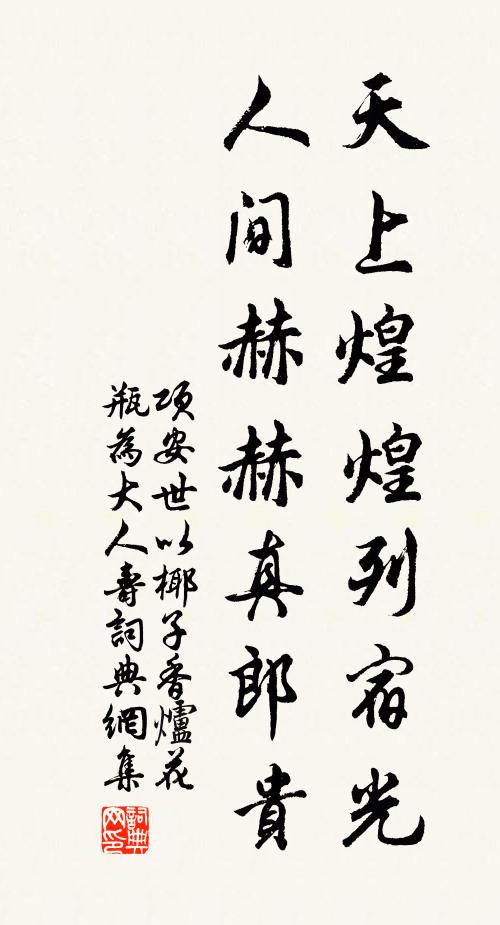 天上煌煌列宿光
人间赫赫真郎貴
项安世以椰子香爐花
瓶為大人壽詞典網集
詞典网印